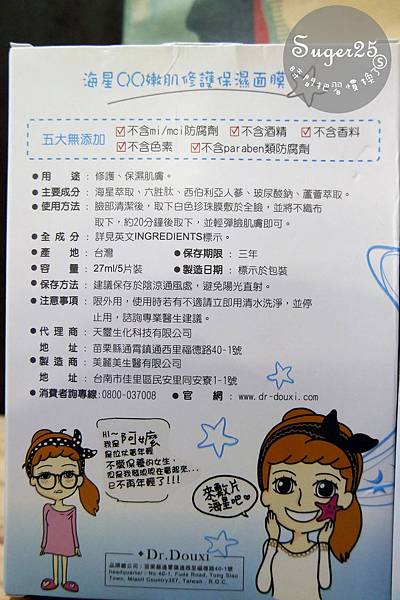 Suger25
海星QQ嫩肌修護保濕面膜
五大無添加
☑不含mi/mci防腐劑 ☑不含酒精 ☑不含香料
☑不含色素 ☑不含paraben類防腐劑
●用途：修護、保濕肌膚。
●主要成分：海星萃取、六胜肽、西伯利亞人蔘、玻尿酸鈉、蘆薈萃取。
●使用方法：臉部清潔後，取下白色珍珠膜敷於全臉，並將不織布
取下，約20分鐘後取下，並輕彈臉肌膚即可。
●全成分：詳見英文INGREDIENTS標示。
●產地：台灣 ●保存期限：三年
●容量：27ml/5片裝 ●製造日期：標示於包裝
●保存方法：建議保存於陰涼通風處，避免陽光直射。
●注意事項：限外用，使用時若有不適請立即用清水洗淨，並停
止用，諮詢專業醫生建議。
●代理商：天璽生化科技有限公司
地址：苗栗縣通霄鎮通西里福德路40-1號
●製造商：美麗美生醫有限公司
地址：台南市佳里區民安里同安寮1-1號
●消費者諮詢專線:0800-037008 ●官網：www.dr-douxi.com
Hi~
我是阿嬤
不愛保養的女生，
已不再年輕了!!!
來敷片
海星吧♥
Dr.Douxi
品牌總公司：苗栗縣通霄鎮通西里福德路40-1號
headquarter：No.40-1, Fude Road, Tong Siao
Town, Miaoli Country357, Taiwan, R.O.C.